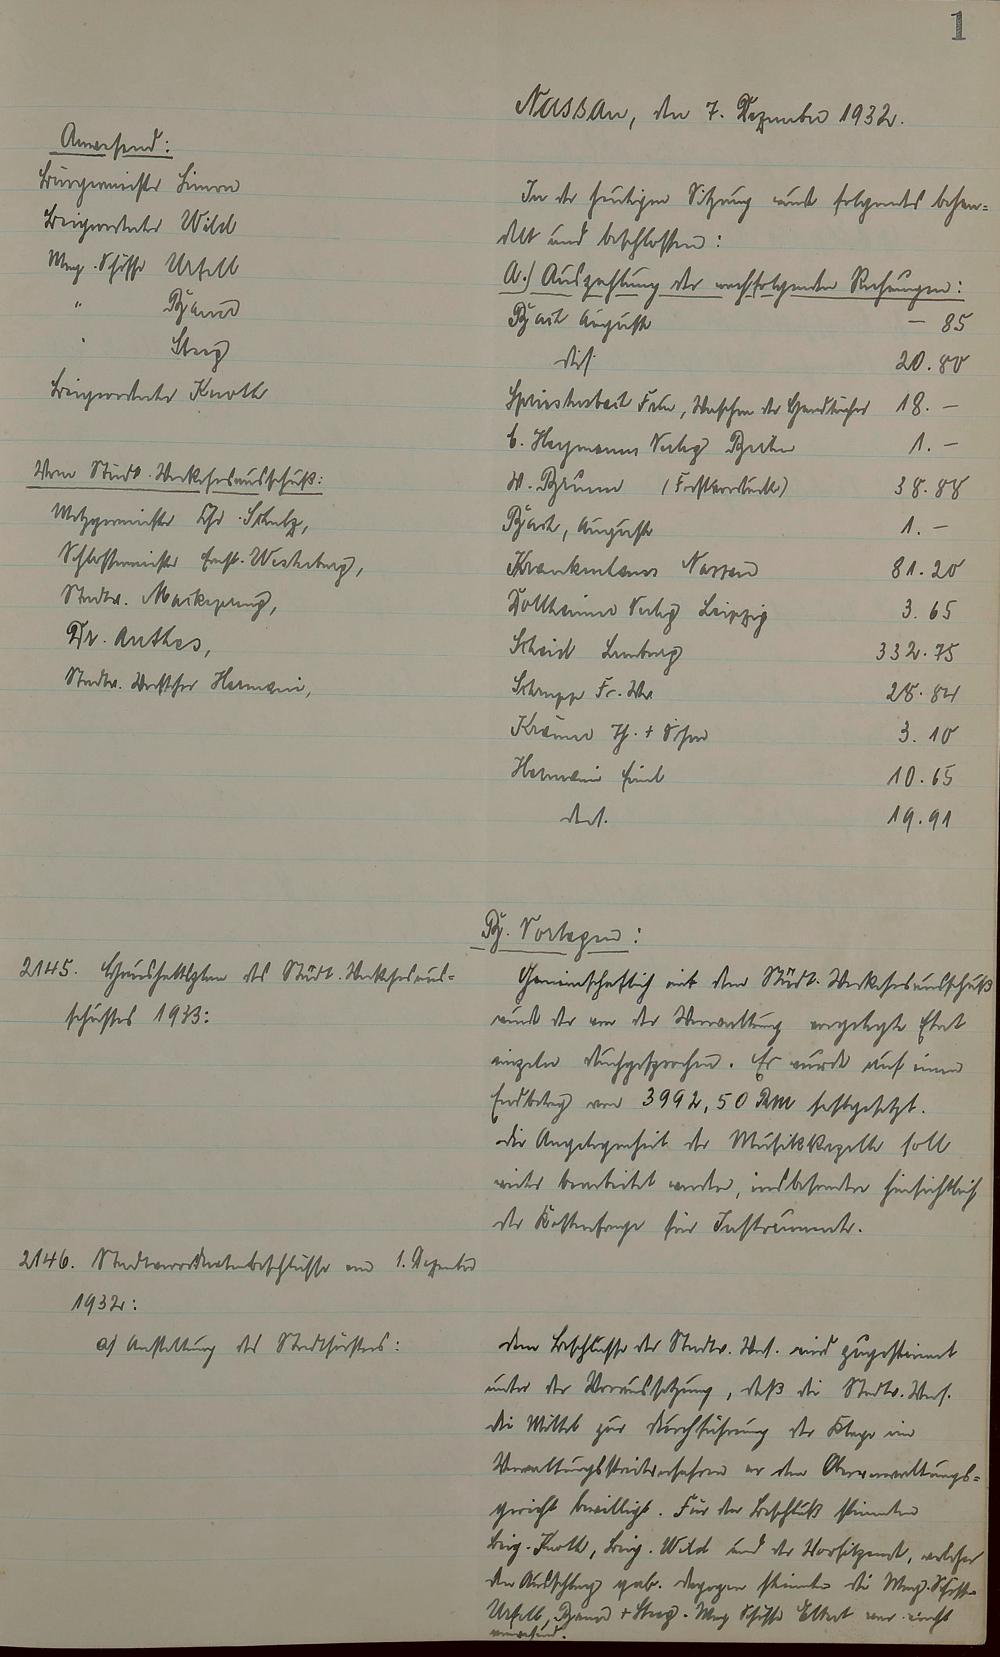 1
Nassau, den 7. Dezember 1932.
Anwesend:
Bürgermeister
Beigeordneter Wild
Mag. Schöffe Urfell
"
"
Beigeordneter Knoth
Vom Städt. Verkehrsausschuß:
Metzgermeister Chr. Schulz,
Schlossermeister Ernst Westerburg,
Stadtv.
Dr. Anthes,
Stadtv. Vorsteher Hermani,
In der heutigen Sitzung wird folgendes behan-
delt und beschlossen:
A.) Auszahlung der nachfolgenden Rechnungen:
August – 85
dies. 20.80
Frau, Waschen der Handtücher 18.–
C. Heymanns Verlag Berlin 1.–
W. Brumm 38.88
August 1.–
Krankenhaus Nassau 81.20
Verlag Leipzig 3.65
Scheid Limburg 332.75
Schrupp Fr. Ww. 28.84
Th. + Sohn 3.10
Hermani Emil 10.65
ders. 19.91
B. Vorlagen:
2145. Haushaltsplan des Städt. Verkehrsaus-
schusses 1933:
Gemeinschaftlich mit dem Städt. Verkehrsausschuß
wird der von der Verwaltung vorgelegte Etat
einzeln durchgesprochen. Er wurde auf einen
Endbetrag von 3992,50 RM festgesetzt.
Die Angelegenheit der Musikkapelle soll
weiter bearbeitet werden, insbesondere hinsichtlich
der Kostenfrage für Instrumente.
2146. Stadtverordnetenbeschlüsse vom 1. Dezember
1932:
a) Anstellung des Stadtförsters:
Dem Beschlusse der Stadtv. Vers. wird zugestimmt
unter der Voraussetzung, daß die Stadtv. Vers.
die Mittel zur Durchführung der Klage im
Verwaltungsstreitverfahren vor dem Oberverwaltungs-
gericht bewilligt. Für den Beschluß stimmten
Beig. Knoth, Beig. Wild und der Vorsitzende, welcher
den Ausschlag gab. Dagegen stimmten die Mag. Schöffen
Urfell, Mag. Schöffe war nicht
anwesend.